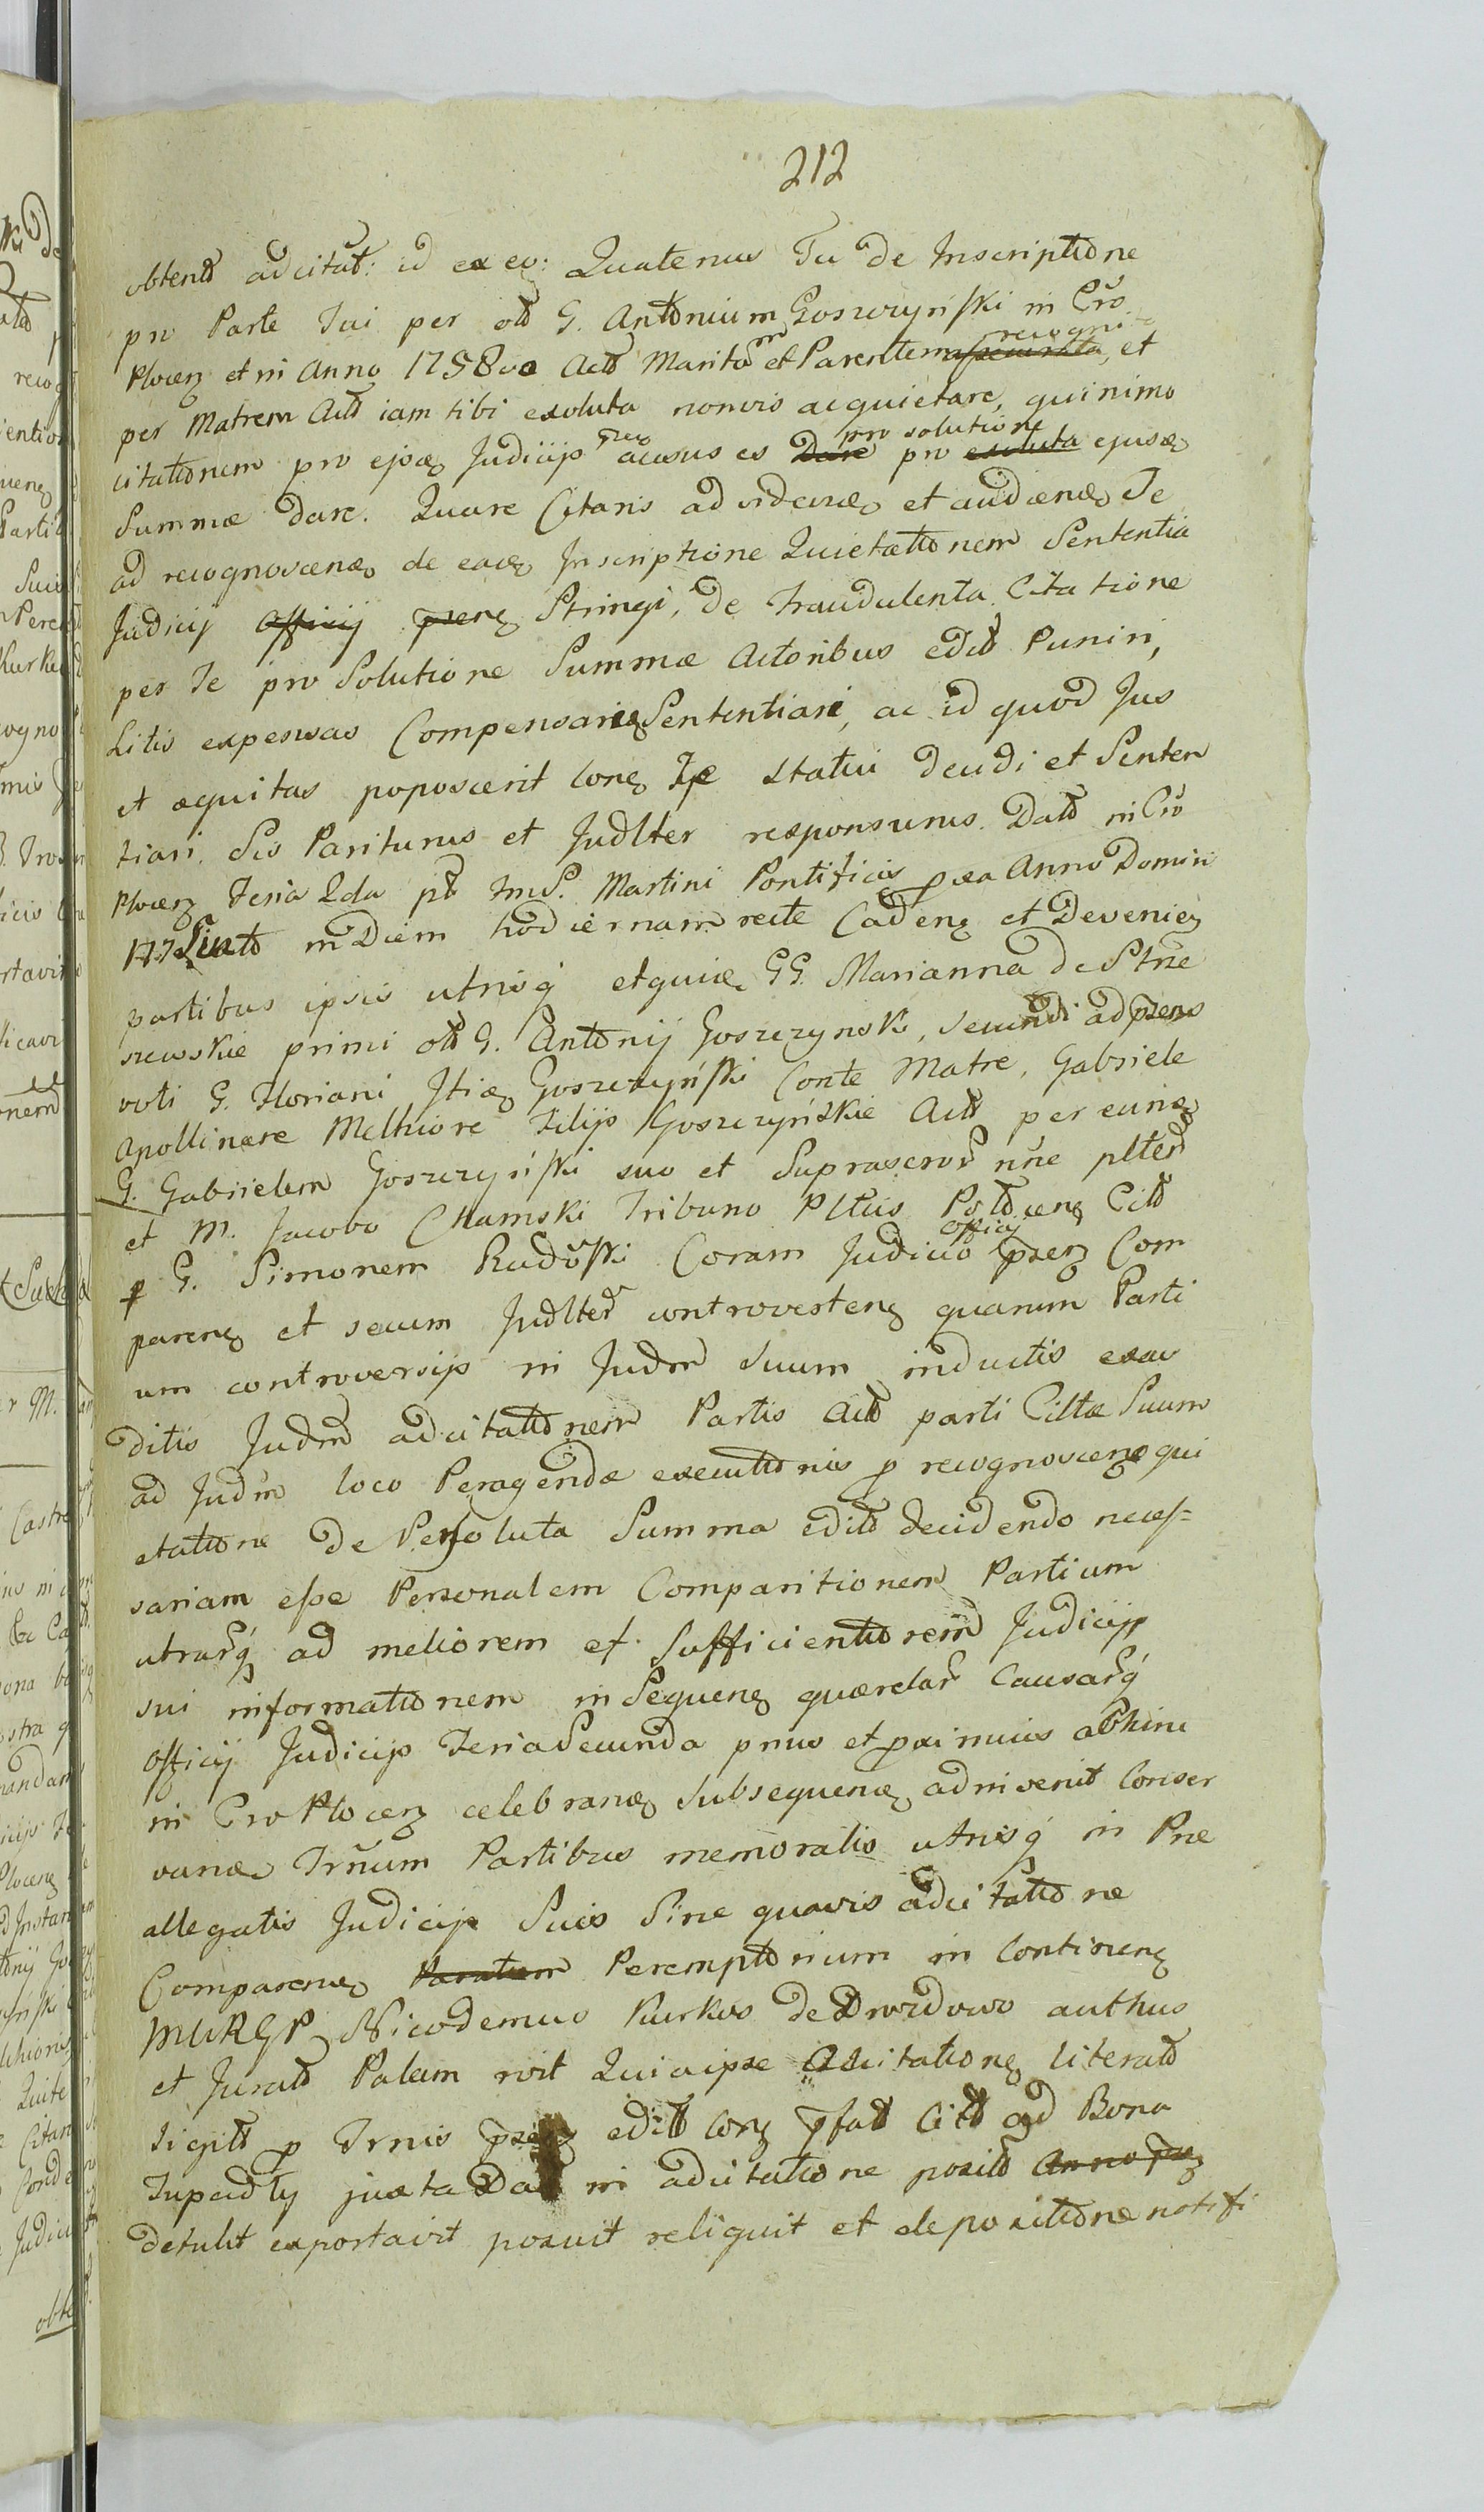 212
obtent adcitat: id ex eo: Quatenus Tu de Inscriptione
pro Parte Tui per olt G. Antonium Goszczyński in Cro
Plocen et in Anno 1758vo Act Maritum et Parentem recogni et
per Matrem Act iam tibi exoluta nonvis acquietare, quinimo
citationem pro ejsq Judicijs acusus es Dare pro solutione pro exoluta ejusq
Summæ dare. Quare Citaris ad videndq et audiendq Te
ad recognoscendq de eadq Inscriptione Quietationem Sententia
Judicij Officij præsen Stringi, de fraudulenta Citatione
per Te pro Solutione Summæ Actoribus edit Puniri,
Litis expensas Compensari Sententiari, ac id quod Jus
et æquitas poposcerit Conq Te Statui decidi et Senten
tiari. Sis Pariturus et Judlter responsurus. Dat in Cro
Plocen Feria 2da pt Fms S. Martini Pontificis pxa Anno Domini
in Diem hodiernam recte Caden et Devenien
partibus ipsis utrisq GG. Marianna de
szewskie primi olt G. Antonij Goszczynski, secundi ad præsens
voti G. Floriani Goszczyński Conte Matre, Gabriele
Apollinare Melhiore Filijs Goszczyńskie Act per eunq
G. Gabrielem Goszczyński suo et Suprascror nne plter
et M. Jacobo Chamski Tribuno Pltus Cit
p G. Simonem Rudoski Coram Judicio Officij præsen Com
paren et secum Judlter controverten quarum Parti
um controversijs in Judm Suum inductis exau
ditis Judm adcitationem Partis Act parti Citta Suum
ad Judm loco Peragenda executionis p recognoscenq qui
etatione De Persoluta Summa edit decidendo neces=
sariam esse Personalem Comparitionem Partium
utrarq ad meliorem et Sufficientiorem Judicij
sui informationem in Sequen quærelar Causarq
Officij Judicijs Feria Secunda pmus et proximius abhinc
in Cro Plocen celebranq Subsequenq adinvenit Conser
vanq Trnum Partibus memoratis utrisq in Præ
allegatis Judicijs Suis Sine quavis adcitatione
Comparenq Paratum Peremptorium in Continen
MURGP Nicodemus Kurkos de Drozdowo authus
et Jurat Palam rvit Quia ipse Adcitationq literat
Sigilt p Trnis præsen edit Conq pfat Cit ad Bona
juxta Dat in adcitatione posit Anno præs
detulit exportavit posuit reliquit et de positione notifi